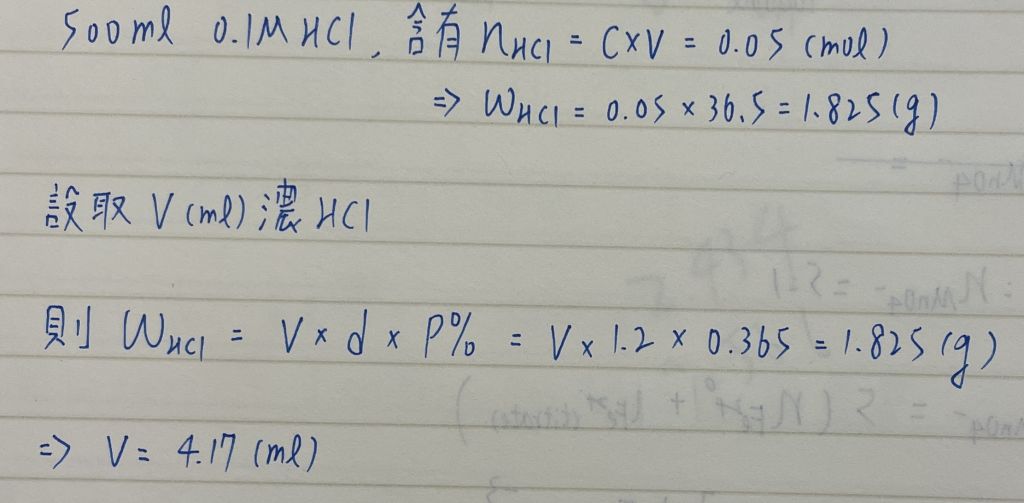 500ml 0.1M HCl, 含有 nHCl = C×V = 0.05 (mol)
=> WHCl = 0.05 × 36.5 = 1.825 (g)
設取 V (ml) 濃 HCl
則 WHCl = V × d × P% = V × 1.2 × 0.365 = 1.825 (g)
=> V = 4.17 (ml)